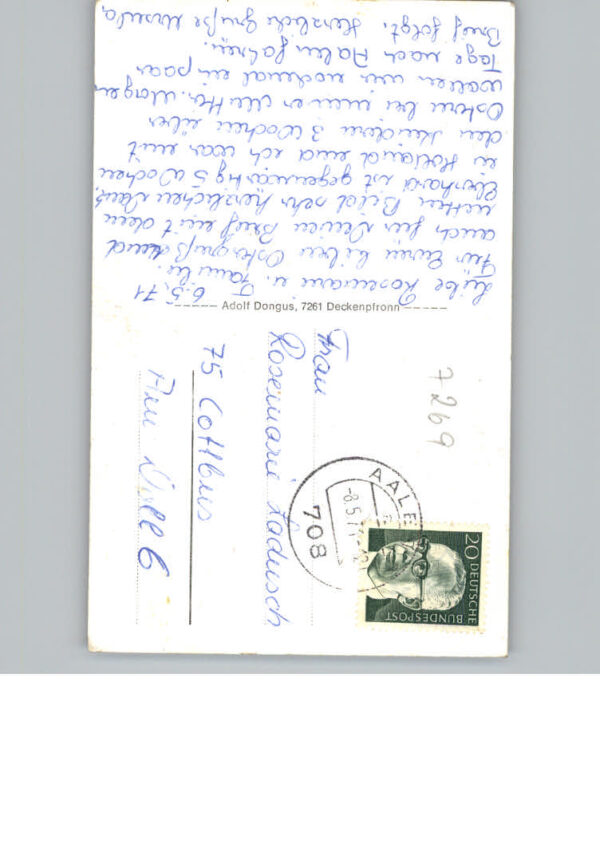 6.5.71
Liebe Rosemarie u. Familie.
Für Euren lieben Ostergruß und
auch für Deinen Brief mit dem
netten Bild sehr herzlichen Dank.
Eberhard ist gegenwärtig 5 Wochen
in Holland und ich war mit
den Kindern 3 Wochen über
Ostern bei meiner Mutter. Morgen
wollen wir nochmal ein paar
Tage nach Aalen fahren.
Brief folgt. Herzliche Grüße Ursula
Adolf Dongus, 7261 Deckenpfronn
Frau
Rosemarie Ladusch
75 Cottbus
Am
6
7269
AALE
-8.5.71
708
20 DEUTSCHE
BUNDESPOST